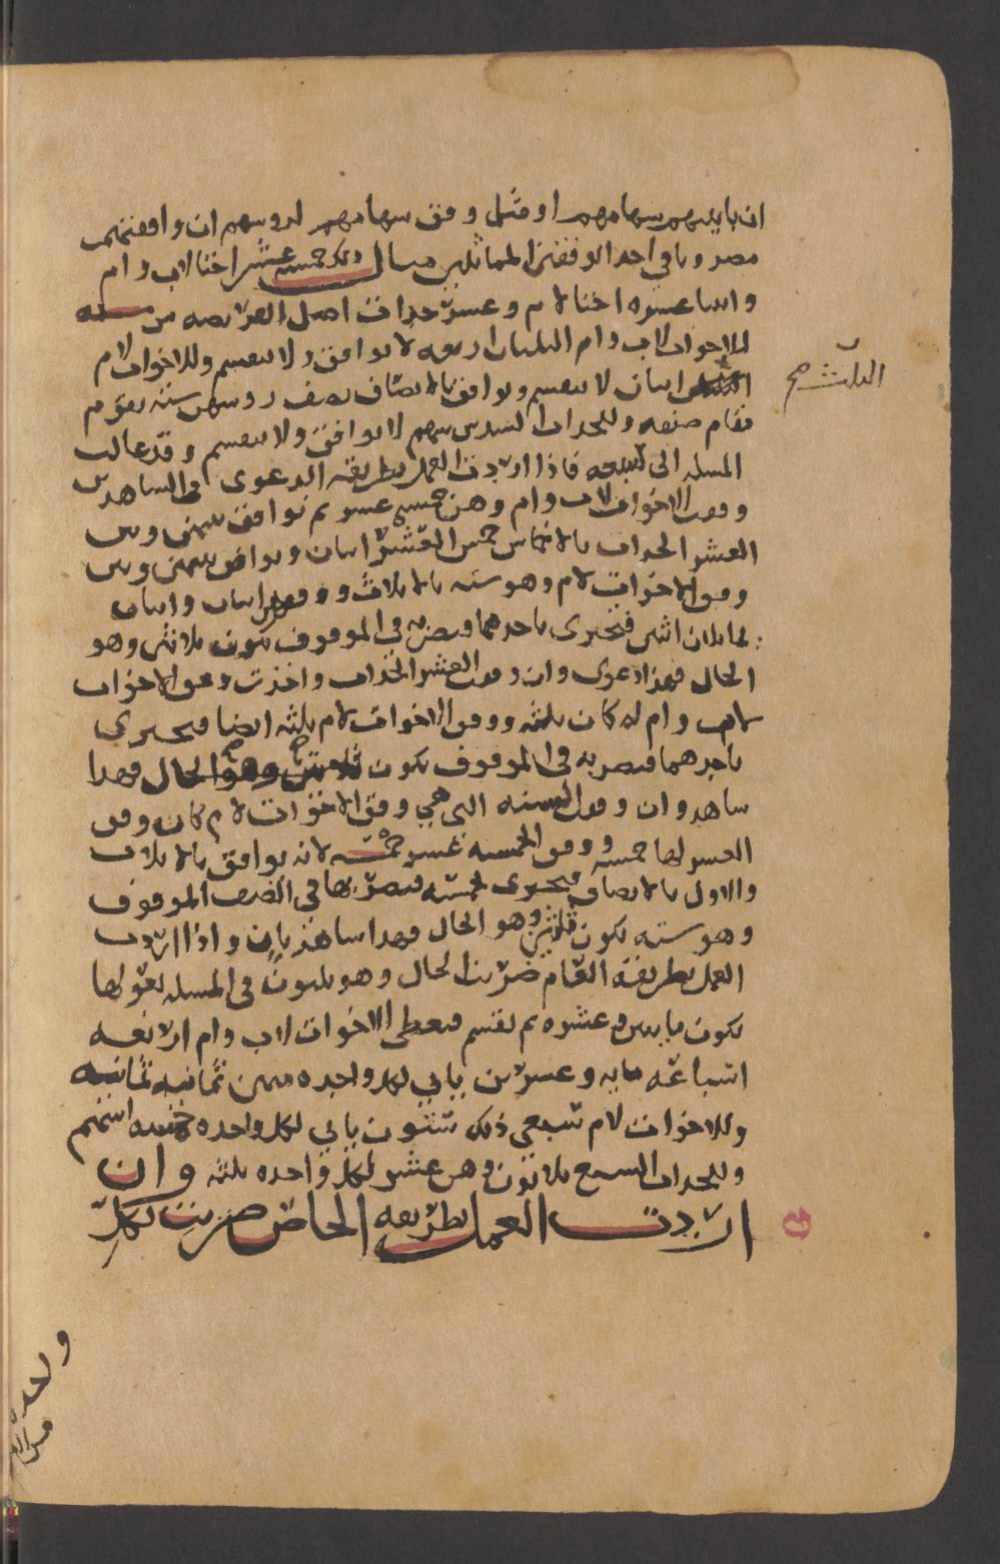 ان باينهم سهامهم او مثل وفق سهامهم لروسهم ان وافقتهم
مصروبا في احد الوفقين المماثلين مثال ذلك خمسه عشر اختا لاب وام
واثنا عشره اختا لام وعشر جدات اصل الفريضه من سته
للاخوات لاب وام الثلثان اربعه لا توافق ولا تنقسم وللاخوات لام
اثنان لا تنقسم وتوافق بالانصاف نصف روسهن سته تقوم
مقام صنفه وللجدات السدس سهم لا توافق ولا تنقسم وقد عالت
المسله الى سبعه فاذا اردت العمل بطريقه الدعوى والشاهدين
وقفت الاخوات لاب وام وهن خمسه عشر ثم توافق بينهن وبين
العشر الجدات بالاخماس خمس العشر اثنان وتوافق بينهن وبين
وفق الاخوات لام وهو سته بالاثلاث ووفقها اثنان واثنان
يماثلان اثنين فتجتزي باحدهما وتضربه في الموقوف تكون ثلاثين وهو
الحال فهذا دعوى وان وقفت العشر الجدات واخذت وفق الاخوات
لاب وام له كان ثلثه ووفق الاخوات لام ثلثه ايضا فتجتزي
باحدهما فتضربه في الموقوف يكون ثلاثين وهو الحال فهذا
شاهد وان وقفت السته التي هي وفق الاخوات لام كان وفق
العشر لها خمسه ووفق الخمسه عشر خمسه لانه توافق بالاثلاث
والاول بالانصاف فتجتزي بخمسه فتضربها في الصنف الموقوف
وهو سته يكون ثلاثين وهو الحال فهذا شاهد ثان واذا اردت
العمل بطريقه العام ضربت الحال وهو ثلثون في المسله بعولها
يكون مايتين وعشره ثم تقسم فتعطي الاخوات لاب وام اربعه
اسباعه مايه وعشرين ياتي لكل واحده منهن ثمانيه ثمانيه
وللاخوات لام سبعي ذلك ستون ياتي لكل واحده خمسه اسهم
وللجدات السبع ثلاثون وهن عشر لكل واحده ثلثه وان
اردت العمل بطريقه الخاص ضربت لكل
الثلث صح
واحده